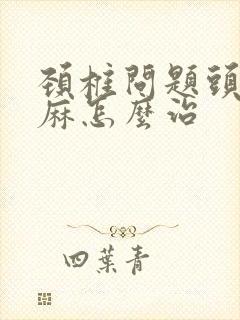 頸椎問題頭
麻怎麼治
四葉青